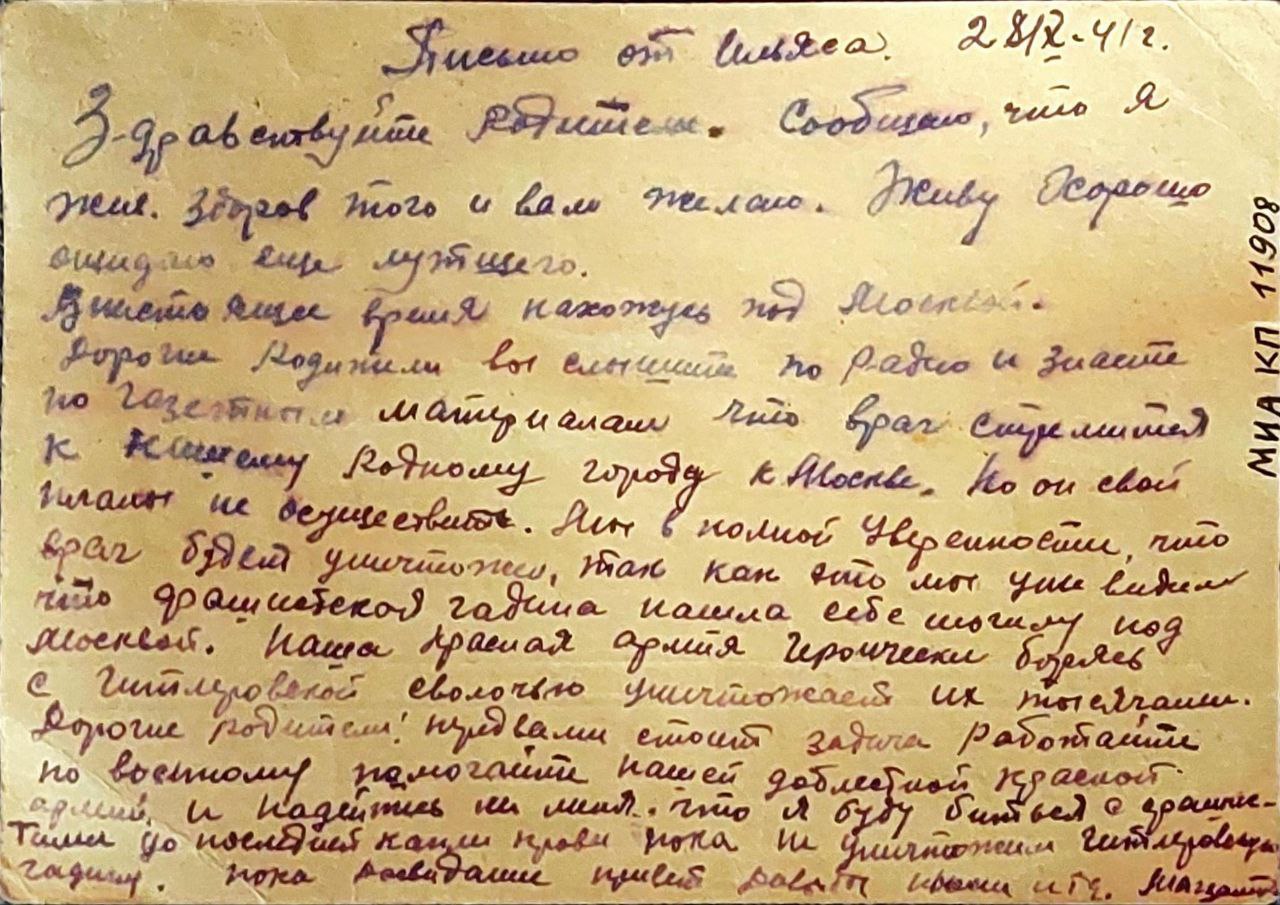 Письмо от Ильяса. 28/X-41г.
Здравствуйте родители. Сообщаю, что я
жив. Здоров того и вам желаю. Живу Хорошо
ощидаю еще лутшего.
время нахожусь под Москвой.
Дорогие Родители вы слышите по Радио и знаете
по газетным материалам что враг стремится
к нашему Родному городу к Москве. Но он свой
планы не осуществит. Мы в полной Уверенности, что
враг будет уничтожен, так как это мы уже видим
что фашистская гадина нашла себе могилу под
Москвой. Наша красная армия Героически борясь
с Гитлеровской сволочью уничтожает их тысячами.
Дорогие родители! передвами стоит задача Работайте
по военному помогайте нашей доблестной красной
армии, и надейтесь на меня. что я буду биться с фашис-
тами до последней капли крови пока не уничтожим гитлеровскую
гадину. пока досвидание привет и тд.
МИА КП 11908